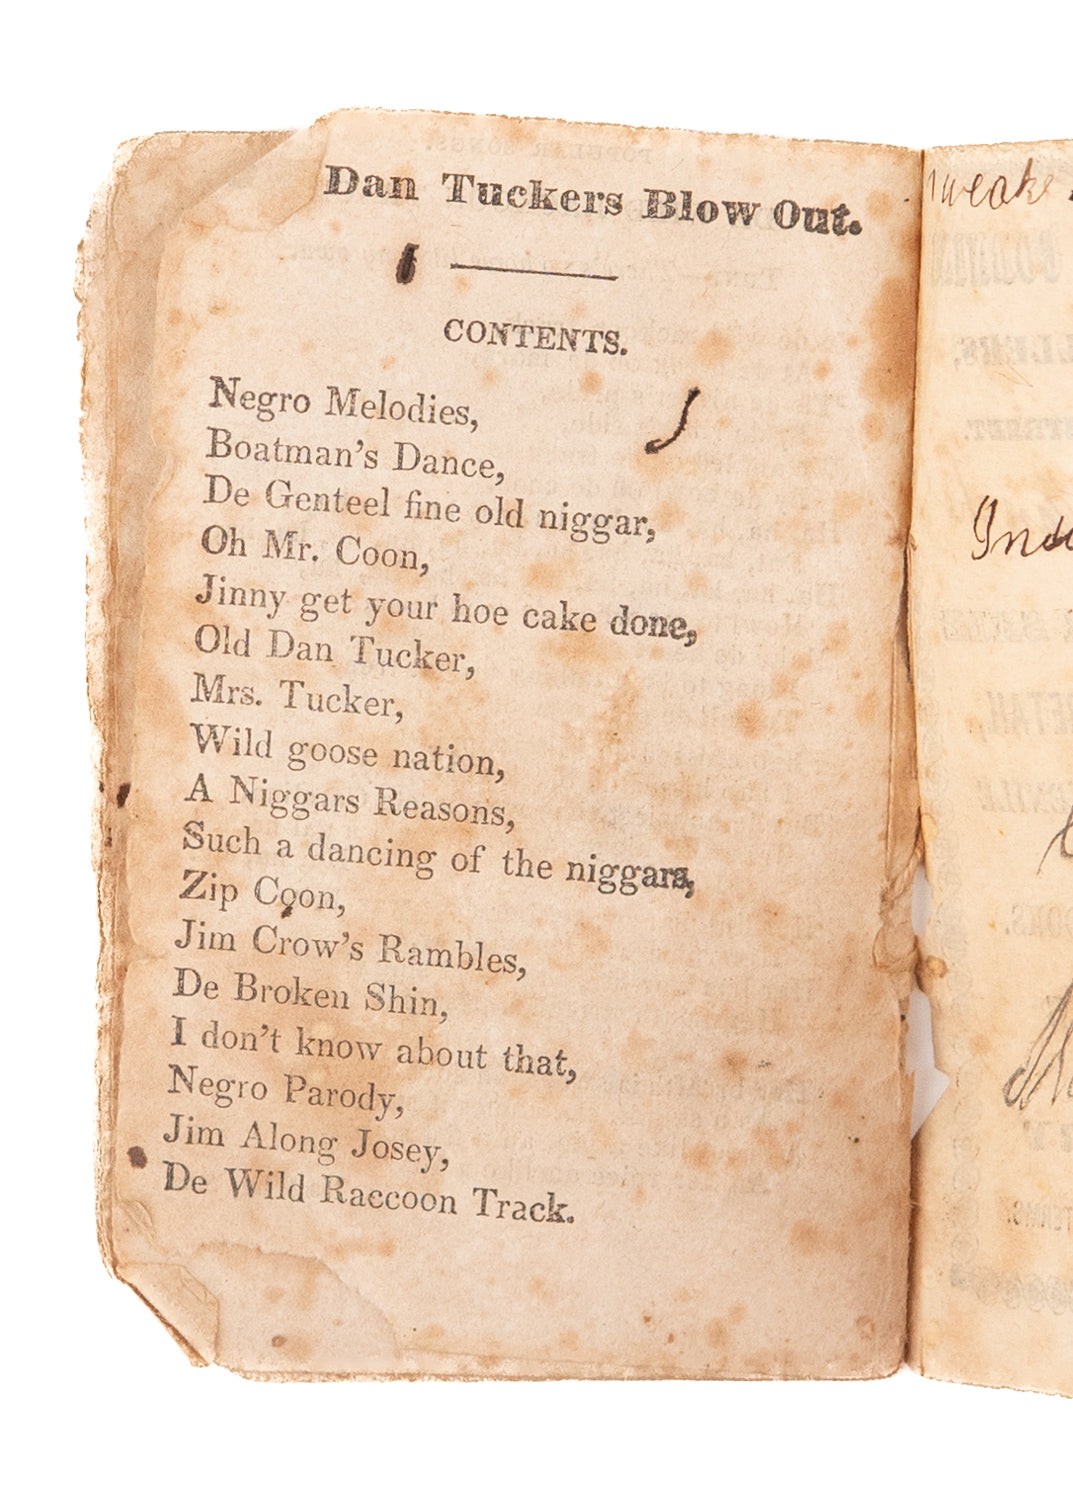 Dan Tuckers Blow Out.
CONTENTS.
Negro Melodies,
Boatman's Dance,
De Genteel fine old niggar,
Oh Mr. Coon,
Jinny get your hoe cake done,
Old Dan Tucker,
Mrs. Tucker,
Wild goose nation,
A Niggars Reasons,
Such a dancing of the niggars,
Zip Coon,
Jim Crow's Rambles,
De Broken Shin,
I don't know about that,
Negro Parody,
Jim Along Josey,
De Wild Raccoon Track.